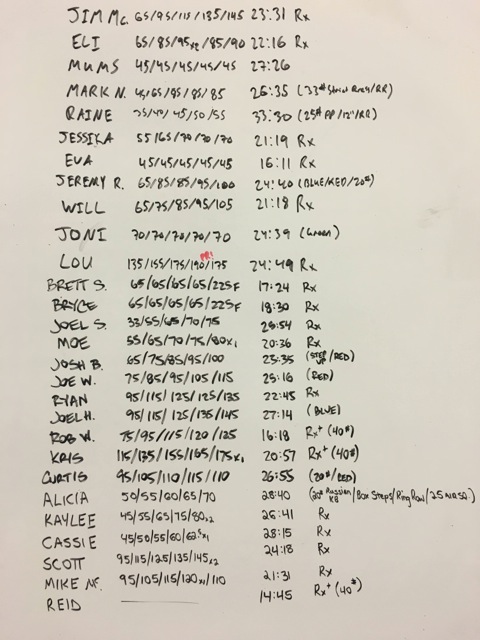 JIM Mc. 65/95/115/135/145 23:31 Rx
ELI 65/85/95x2/85/90 22:16 Rx
MUMS 45/45/45/45/45 27:26
MARK N. 45/65/85/85/85 26:35 (33# Row/RR)
RAINE 35/40/45/50/55 33:30 (25# PP/12"/RR)
JESSIKA 55/65/70/70/70 21:19 Rx
EVA 45/45/45/45/45 16:11 Rx
JEREMY R. 65/85/85/95/100 24:40 (BLUE/RED/20#)
WILL 65/75/85/95/105 21:18 Rx
JONI 70/70/70/70/70 24:39 (Green)
PR!
LOU 135/155/175/190/175 24:49 Rx
BRETT S. 65/65/65/65/225F 17:24 Rx
BRYCE 65/65/65/65/225F 18:30 Rx
JOEL S. 33/55/65/70/75 28:54 Rx
MOE 55/65/70/75/80x1 20:36 Rx
JOSH B. 65/75/85/95/100 23:35 (STEP UP/RED)
JOE W. 75/85/95/105/115 25:16 (RED)
RYAN 95/115/125/125/135 22:45 Rx
JOEL H. 95/115/125/135/145 27:14 (BLUE)
ROB W. 75/95/115/120/125 16:18 Rx+ (40#)
KRIS 115/135/155/165/175x1 20:57 Rx+ (40#)
CURTIS 95/105/110/115/110 26:55 (20#/RED)
ALICIA 50/55/60/65/70 28:40 (20# Russian KB/Box Steps/Ring Row/25
KAYLEE 45/55/65/75/80x2 26:41 Rx
CASSIE 45/50/55/60/62.5x1 28:15 Rx
SCOTT 95/115/125/135/145x2 24:18 Rx
MIKE NF. 95/105/115/120x1/110 21:31 Rx
REID 14:45 Rx+ (40#)